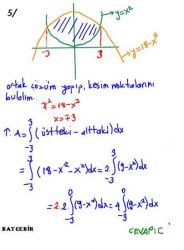 5/
y=x²
-3
3
y=18-x²
ortak çözüm yapıp, kesim noktalarını
bulalım.
x²=18-x²
x=∓3
A = ∫₋₃³ (üstteki - alttaki)dx
= ∫₋₃³ (18-x²-x²)dx = 2∫₋₃³ (9-x²)dx
= 2.2∫₋₃⁰ (9-x²)dx = 4∫₋₃⁰ (9-x²)dx
BATCEBİR
CEVAP: C